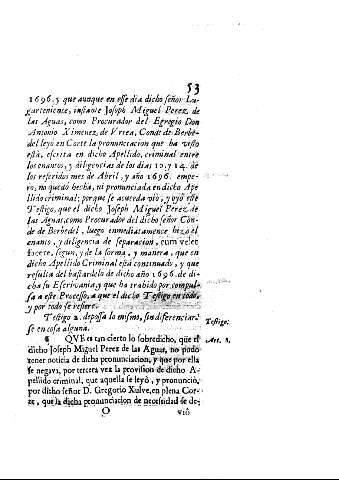 53
1696. y que aunque en esse dia dicho señor Lu-
garteniense, instante Joseph Miguel Perez de
las Aguas, como Procurador del Egregio Don
Antonio Ximenez, de Vrrea, Conde de Berbe-
del leyò en Corte la pronunciacion que ha visto
està, escrita en dicho Apellido, criminal entre
los enantos, y diligencias de los dias 10. y 14. de
los referidos mes de Abril, y año 1696. empe-
ro, no quedò hecha, ni pronunciada en dicho Ape
llido criminal; porque se acuerda viò, y oyò este
Testigo, que el dicho Joseph Miguel Perez de
las Aguas, como Procurador del dicho señor Con-
de de Berbedel, luego inmediatamente hizo el
enanto, y diligencia de separacion, cum velet
facere, segun, y de la forma, y manera, que en
dicho Apellido Criminal està continuado, y que
resulta del bastardelo de dicho año 1696. de di-
cha su Escrivania, y que ha traido por compul-
sa a este Processo, a que el dicho Testigo en todo,
y por todo se refiere.
Testigo 2. deposa lo mismo, sin diferenciar-
se en cosa alguna.
Testigo.
QVE es tan cierto lo sobredicho, que el
Art. 3.
dicho Joseph Miguel Perez de las Aguas, no pudo
tener noticia de dicha pronunciacion, y que por ella
se negava, por tercera vez la provision de dicho A-
pellido criminal, que aquella se leyò, y pronunciò,
por dicho señor D. Gregorio Xulve, en plena Cor-
te, que la dicha pronunciacion de necessidad se de-
O
viò